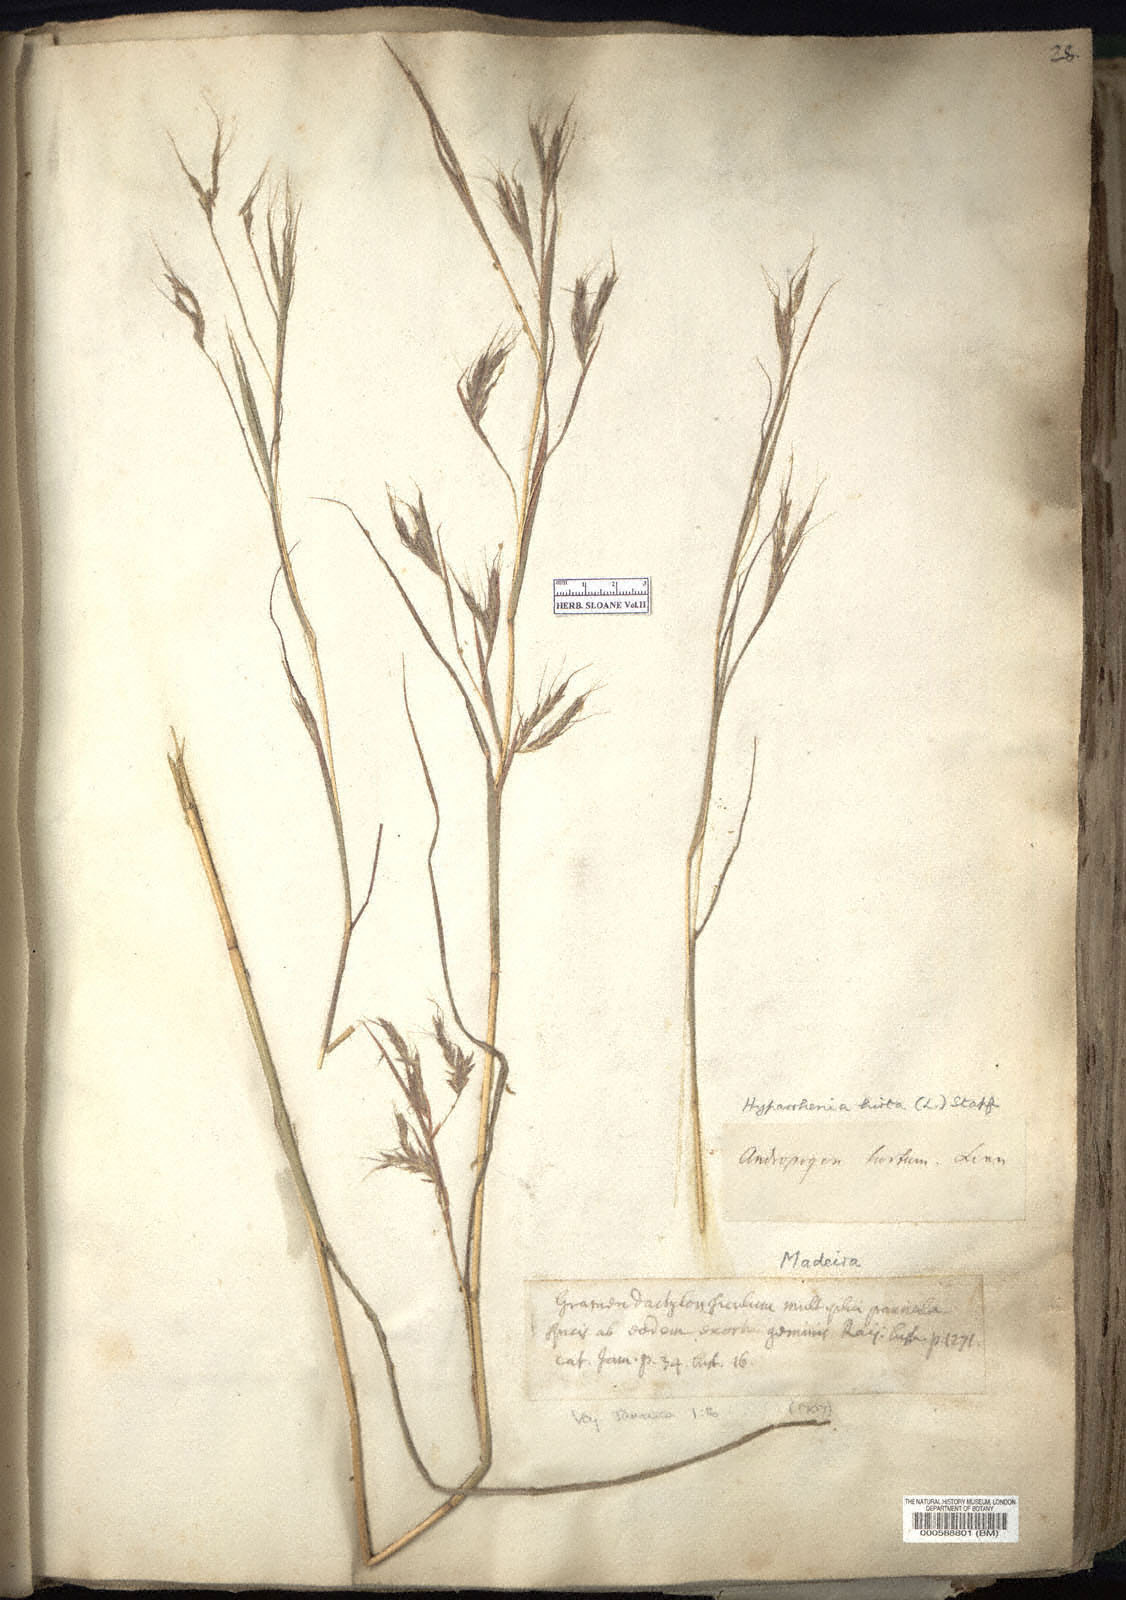 28.
mm 1 2 3
HERB. SLOANE Vol.II
Hyparrhenia hirta (L.) Stapf
Andropogon hirtum. Linn
Madeira
Gramen dactylon panicula
spicis ab eodem exortu geminis Raij. p. 1271.
cat. Jam. p. 34. hist. 16.
Voy. Jamaica 1:16 (1707)
THE NATURAL HISTORY MUSEUM, LONDON
DEPARTMENT OF BOTANY
000588801 (BM)